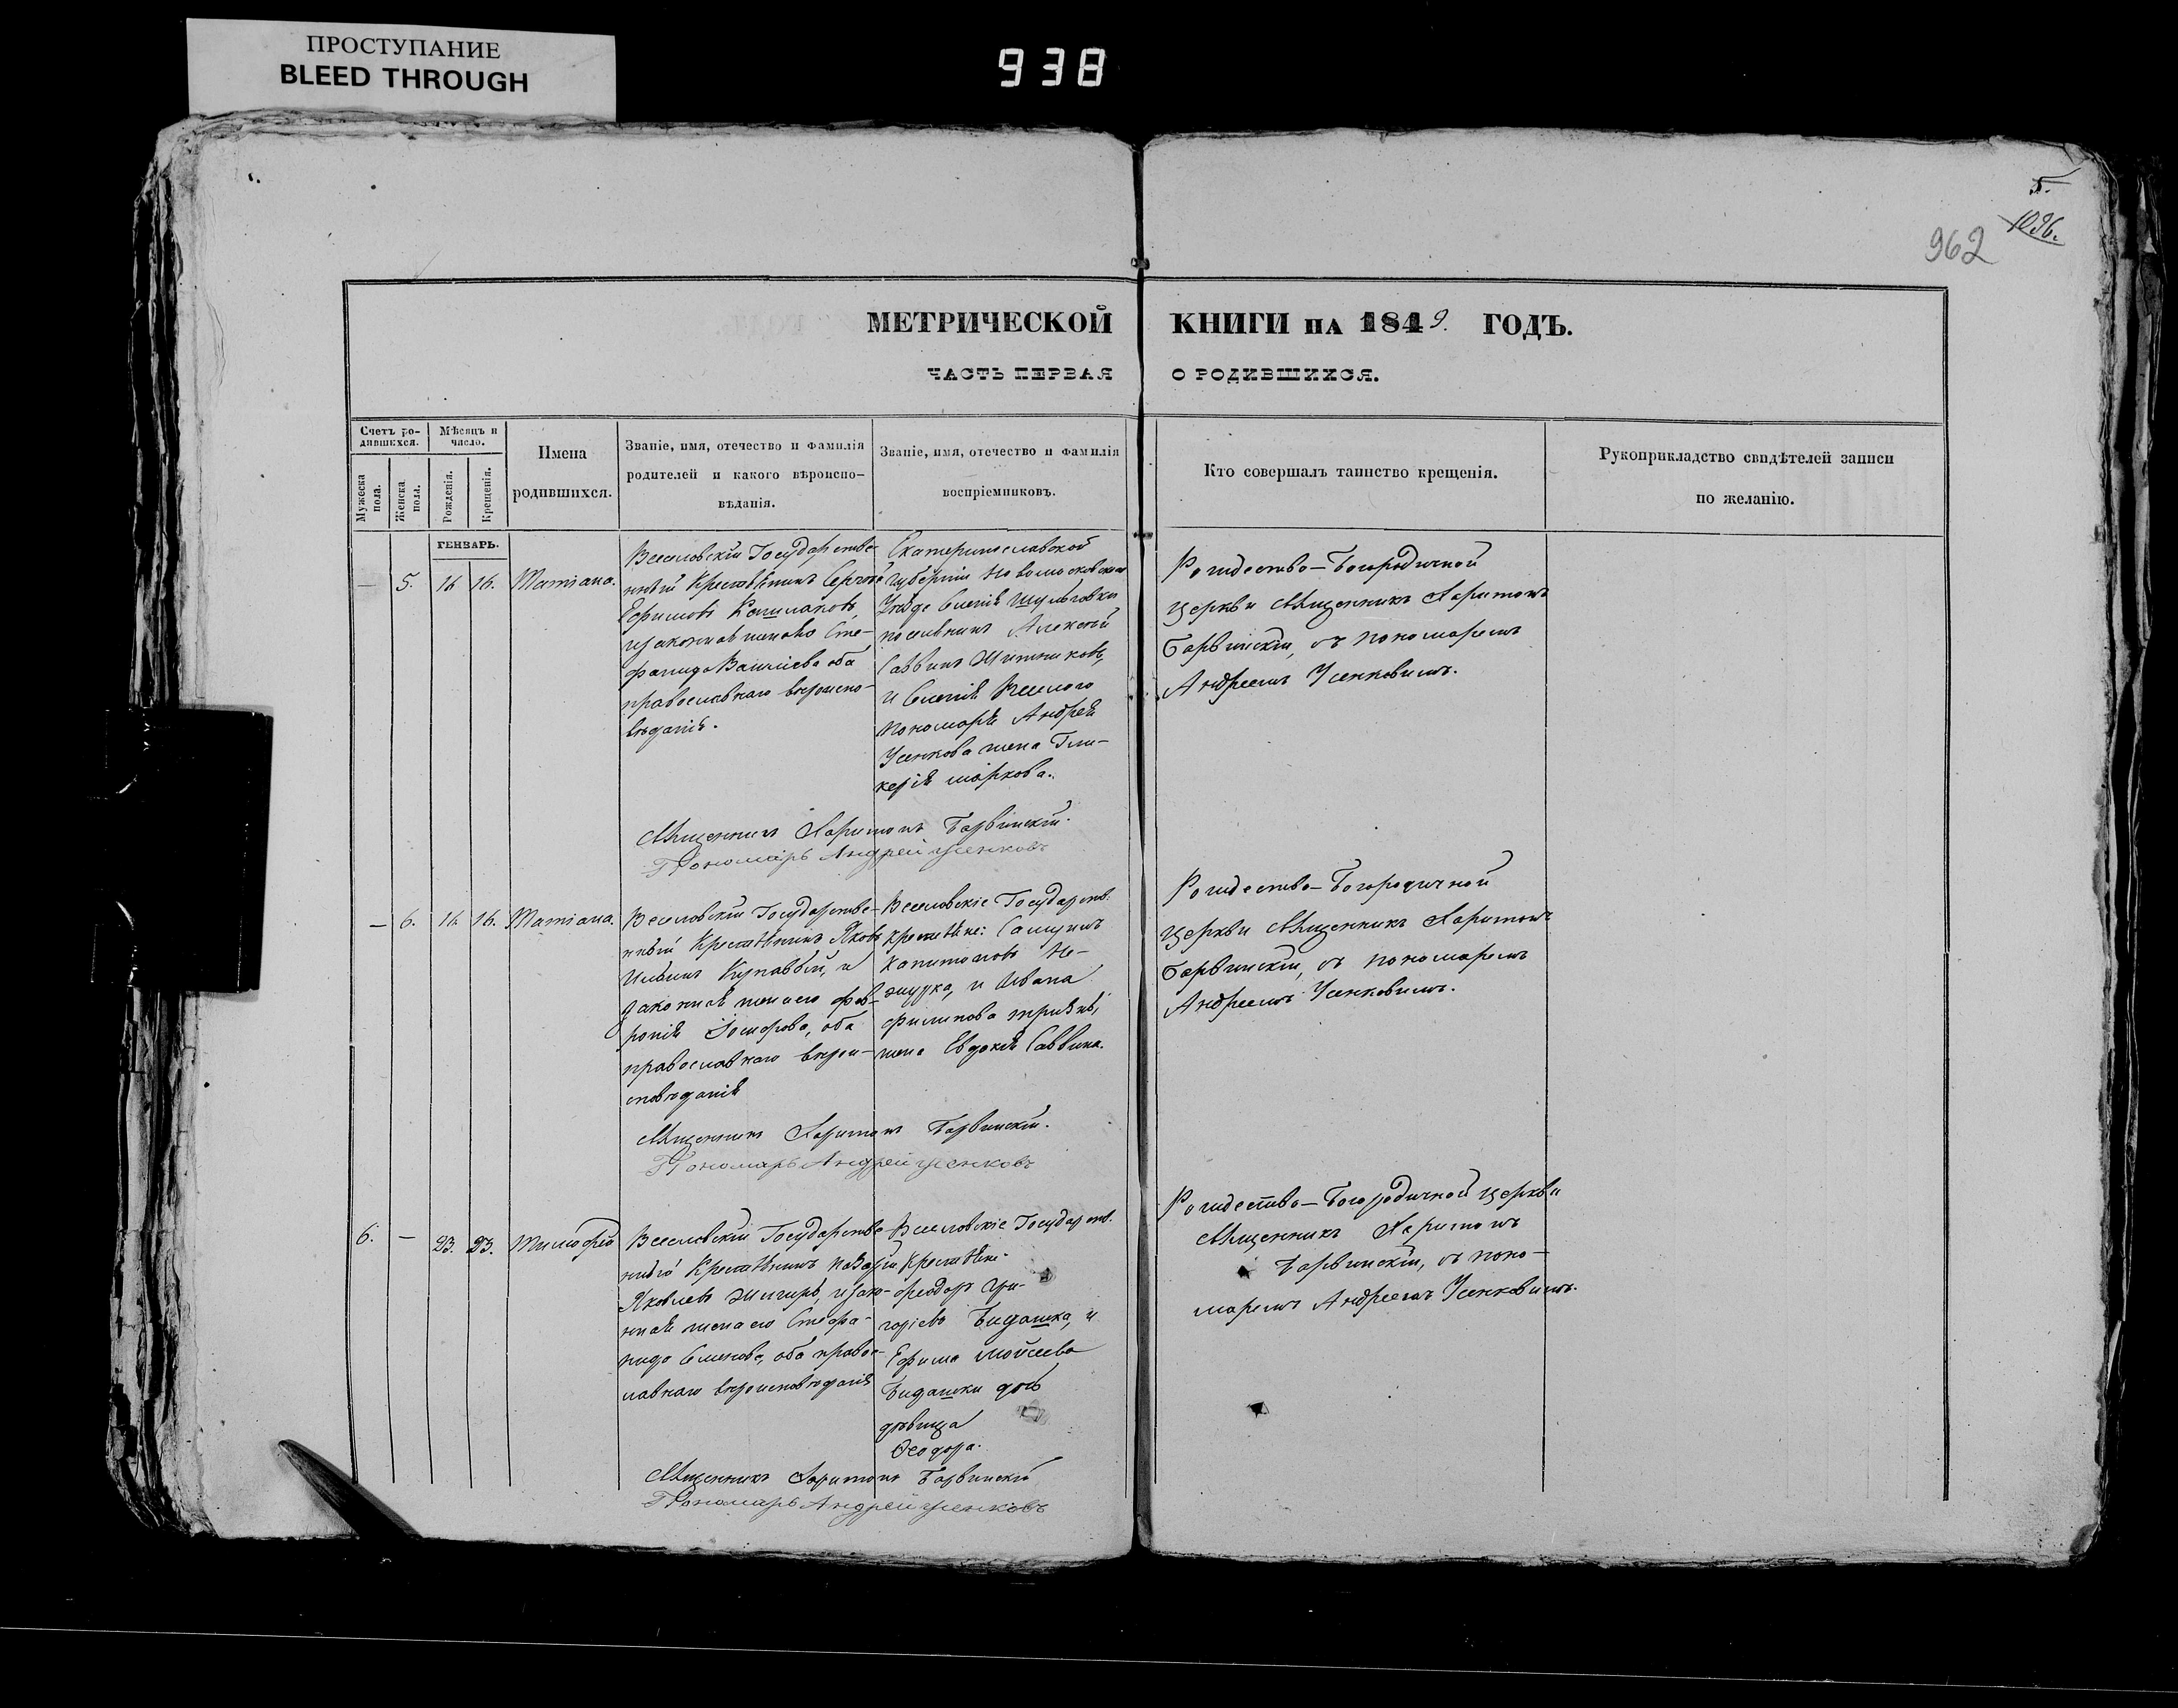 ПРОСТУПАНИЕ
BLEED THROUGH
938
5.
1036.
962
МЕТРИЧЕСКОЙ КНИГИ НА 1849. ГОДЪ.
ЧАСТЬ ПЕРВАЯ О РОДИВШИХСЯ.
Счетъ ро-
дившихся.
Мужеска
пола.
Женска
пола.
Мѣсяцъ и
число.
Рожденія.
Крещенія.
Имена
родившихся.
Званіе, имя, отечество и фамилія
родителей и какого вѣроиспо-
вѣданія.
Званіе, имя, отечество и фамилія
воспріемниковъ.
Кто совершалъ таинство крещенія.
Рукоприкладство свидѣтелей записи
по желанію.
ГЕНВАРЬ.
— 5. 16 16. Татіана.
Веселовскій Государстве-
нный Крестьянинъ Сергѣй
Ефимовъ
и законная жена его Сте-
фанида оба
православнаго вѣроиспо-
вѣданія.
Екатеринославской
губерніи Новомосковскаго
Уѣзда Селенія Шульговки
поселянинъ Алексѣй
Саввинъ Житниковъ,
и Селенія Веселого
пономаря Андрея
Усенкова жена Гли-
керія Маркова.
Рождество-Богородичной
церкви Священникъ Харитонъ
Барвинскій, съ пономаремъ
Андреемъ Усенковымъ.
Священникъ Харитонъ Барвинскій.
Пономарь Андрей Усенковъ
— 6. 16. 16. Татіана.
Веселовскій Государстве-
нный Крестьянинъ Яковъ
Ильинъ и
законная жена его Фев-
ронія Іосифова, оба
православнаго вѣрои-
сповѣданія
Веселовскіе Государств:
Крестьяне:
Капитоновъ Не-
и Ивана
Филипова
жена Евдокія Саввина.
Рождество-Богородичной
церкви Священникъ Харитонъ
Барвинскій, съ пономаремъ
Андреемъ Усенковымъ.
Священникъ Харитонъ Барвинскій.
Пономарь Андрей Усенковъ
6. — 23. 23. Тимофей
Веселовскій Государстве-
нный Крестьянинъ Назарій
Яковлевъ и зако-
нная жена его Стефа-
нида Семенова, оба правос-
лавнаго вѣроисповѣданія
Веселовскіе Государств.
Крестьяне:
Феодоръ Гри-
горіевъ Бидашка, и
Ефима Мойсеева
Бидашки дочь
дѣвица
Ѳеодора.
Рождество-Богородичной церкви
Священникъ Харитонъ
Барвинскій, съ поно-
маремъ Андреемъ Усенковымъ.
Священникъ Харитонъ Барвинскій
Пономарь Андрей Усенковъ